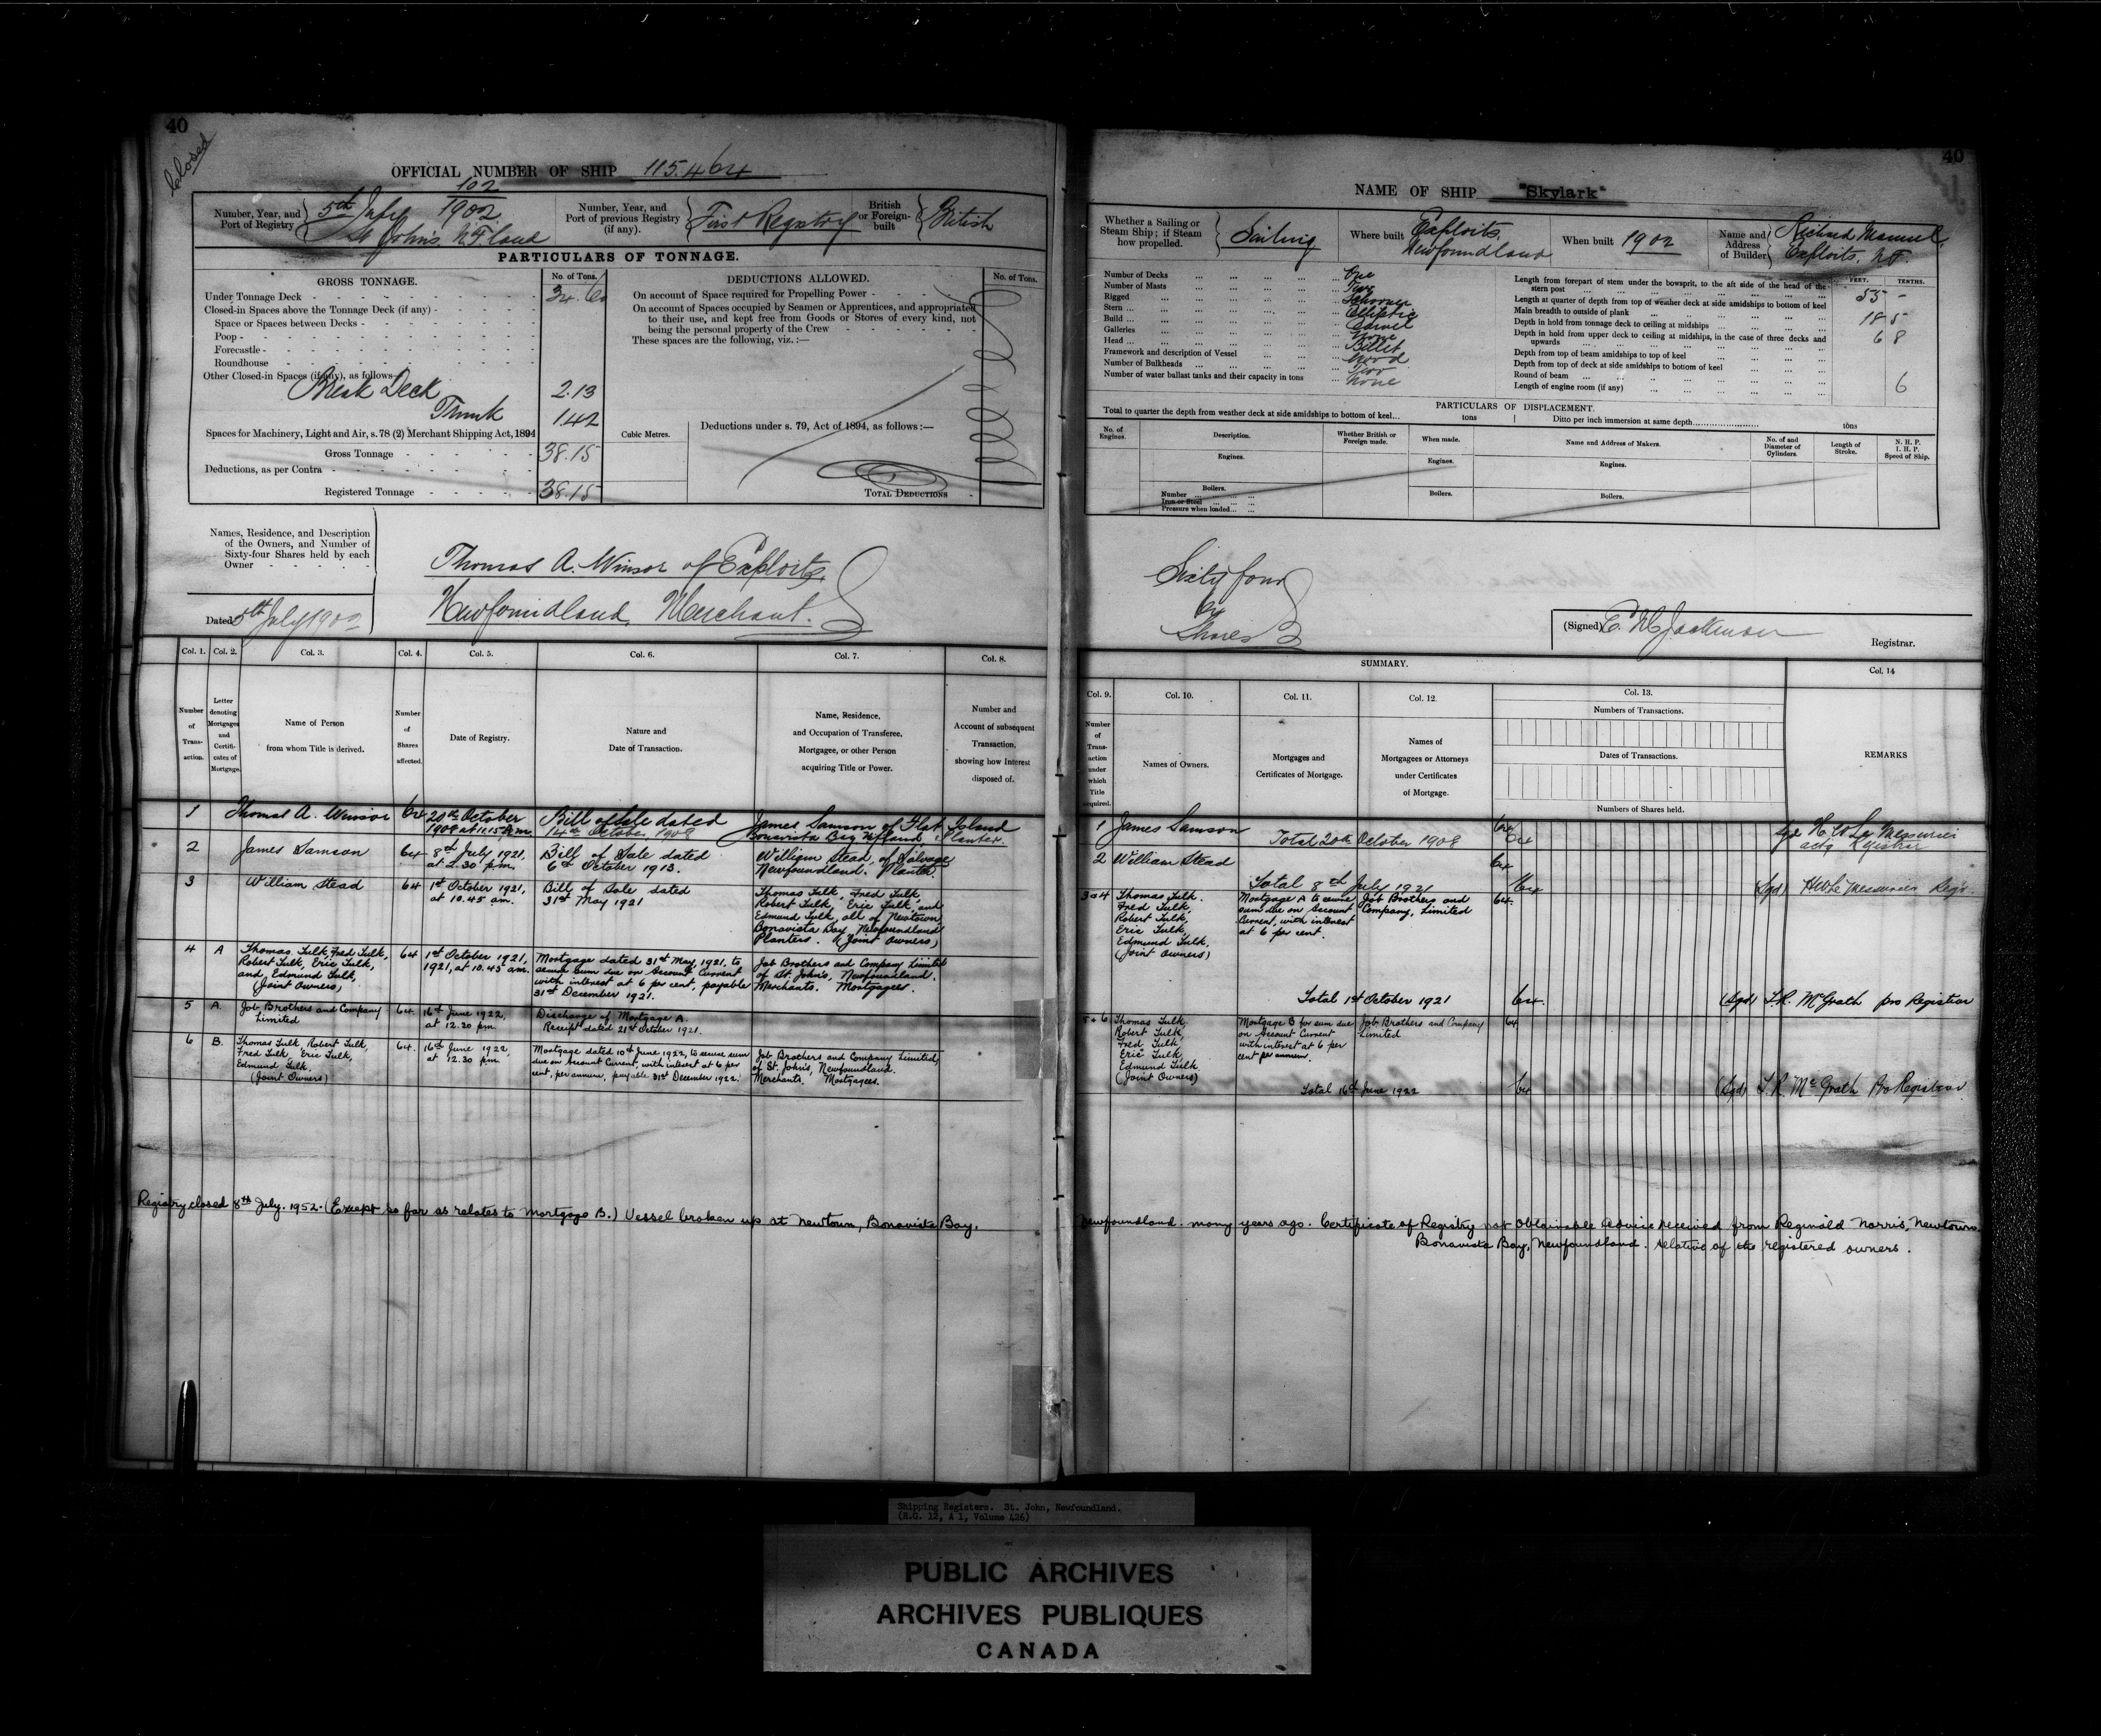 40
Closed
OFFICIAL NUMBER OF SHIP 115.464
Number, Year, and Port of Registry
102
5th July 1902
St John's N.F.land
Number, Year, and Port of previous Registry (if any).
First Registry
British or Foreign-built
British
PARTICULARS OF TONNAGE.
GROSS TONNAGE.
No. of Tons.
Under Tonnage Deck 34.60
Closed-in Spaces above the Tonnage Deck (if any)
Space or Spaces between Decks
Poop
Forecastle
Roundhouse
Other Closed-in Spaces (if any), as follows
Break Deck 2.13
Trunk 1.42
Spaces for Machinery, Light and Air, s. 78 (2) Merchant Shipping Act, 1894
Gross Tonnage 38.15
Deductions, as per Contra
Registered Tonnage 38.15
Cubic Metres.
DEDUCTIONS ALLOWED.
No. of Tons.
On account of Space required for Propelling Power
On account of Spaces occupied by Seamen or Apprentices, and appropriated
to their use, and kept free from Goods or Stores of every kind, not
being the personal property of the Crew
These spaces are the following, viz. :—
Deductions under s. 79, Act of 1894, as follows :—
TOTAL DEDUCTIONS
Names, Residence, and Description
of the Owners, and Number of
Sixty-four Shares held by each
Owner
Dated 5th July 1902
Thomas A. Winsor of Exploits,
Newfoundland, Merchant.
Col. 1. Col. 2. Col. 3. Col. 4. Col. 5. Col. 6. Col. 7. Col. 8.
Number of Transaction.
Letter denoting Mortgages and Certificates of Mortgage.
Name of Person from whom Title is derived.
Number of Shares affected.
Date of Registry.
Nature and Date of Transaction.
Name, Residence, and Occupation of Transferee, Mortgagee, or other Person acquiring Title or Power.
Number and Account of subsequent Transaction, showing how Interest disposed of.
1 Thomas A. Winsor 64 20th October
1908 at 11.15 a.m.
Bill of Sale dated
14th October 1908
James Samson of Flat Island
Bonavista Bay Nfland Planter.
2 James Samson 64 8th July 1921,
at 2.30 p.m.
Bill of Sale dated
6th October 1913.
William Stead, of Salvage
Newfoundland. Planter.
3 William Stead 64 1st October 1921,
at 10.45 am.
Bill of Sale dated
31st May 1921
Thomas Tulk, Fred Tulk,
Robert Tulk, Eric Tulk, and
Edmund Tulk, all of Newtown
Bonavista Bay, Newfoundland
Planters. (Joint Owners)
4 A Thomas Tulk, Fred Tulk,
Robert Tulk, Eric Tulk,
and, Edmund Tulk,
(Joint Owners)
64 1st October 1921,
1921, at 10.45 am.
Mortgage dated 31st May, 1921, to
secure sum due on Account Current
with interest at 6 per cent, payable
31st December 1921.
Job Brothers and Company Limited
of St. John's, Newfoundland.
Merchants. Mortgagees.
5 A. Job Brothers and Company
Limited
64. 16th June 1922,
at 12.30 pm.
Discharge of Mortgage A.
Receipt dated 21st October 1921.
6 B. Thomas Tulk, Robert Tulk,
Fred Tulk, Eric Tulk,
Edmund Tulk.
(Joint Owners)
64. 16th June 1922,
at 12.30 pm.
Mortgage dated 10th June 1922, to secure sum
due on Account Current, with interest at 6 per
cent, per annum, payable 31st December 1922.
Job Brothers and Company Limited,
of St. John's, Newfoundland.
Merchants. Mortgagees.
Registry closed 8th July. 1952. (Except so far as relates to Mortgage B.) Vessel broken up at Newtown, Bonavista Bay,
40
NAME OF SHIP "Skylark"
Whether a Sailing or Steam Ship ; if Steam how propelled.
Sailing
Where built
Exploits,
Newfoundland
When built 1902
Name and Address of Builder
Richard Manuel,
Exploits, N.F.
Number of Decks One
Number of Masts Two
Rigged Schooner
Stern Elliptic
Build Carvel
Galleries None
Head Billet
Framework and description of Vessel Wood
Number of Bulkheads Two
Number of water ballast tanks and their capacity in tons None
FEET. TENTHS.
Length from forepart of stem under the bowsprit, to the aft side of the head of the stern post 55 -
Length at quarter of depth from top of weather deck at side amidships to bottom of keel
Main breadth to outside of plank 18 5
Depth in hold from tonnage deck to ceiling at midships 6 8
Depth in hold from upper deck to ceiling at midships, in the case of three decks and upwards
Depth from top of beam amidships to top of keel
Depth from top of deck at side amidships to bottom of keel
Round of beam 6
Length of engine room (if any)
PARTICULARS OF DISPLACEMENT.
Total to quarter the depth from weather deck at side amidships to bottom of keel... tons
Ditto per inch immersion at same depth tons
No. of Engines.
Description.
Whether British or Foreign made.
When made.
Name and Address of Makers.
No. of and Diameter of Cylinders.
Length of Stroke.
N. H. P.
I. H. P.
Speed of Ship.
Engines. Engines. Engines.
Boilers. Boilers. Boilers.
Number
Iron or Steel
Pressure when loaded
Sixty four
64
Shares
(Signed)
Registrar.
SUMMARY.
Col. 9. Col. 10. Col. 11. Col. 12. Col. 13. Col. 14
Number of Transaction under which Title acquired.
Names of Owners.
Mortgages and Certificates of Mortgage.
Names of Mortgagees or Attorneys under Certificates of Mortgage.
Numbers of Transactions.
Dates of Transactions.
Numbers of Shares held.
REMARKS
1 James Samson 64
Total 20th October 1908 64
Sgd H. W. Le Messurier
actg Registrar
2 William Stead 64
Total 8th July 1921 64
(Sgd) HW Le Messurier Regr.
3 & 4 Thomas Tulk.
Fred Tulk,
Robert Tulk,
Eric Tulk,
Edmund Tulk,
(Joint Owners)
Mortgage A to secure
sum due on Account
Current, with interest
at 6 per cent.
Job Brothers and
Company, Limited
64.
Total 1st October 1921 64.
(Sgd) T.R. McGrath pro Registrar
5 & 6 Thomas Tulk,
Robert Tulk,
Fred Tulk,
Eric Tulk,
Edmund Tulk
(Joint Owners)
Mortgage B for sum due
on Account Current
with interest at 6 per
cent per annum.
Job Brothers and Company
Limited
64
Total 16th June 1922 64
(Sgd) T.R. McGrath Pro Registrar
Newfoundland. many years ago. Certificate of Registry not obtainable advice received from Reginald Norris, Newtown
Bonavista Bay, Newfoundland. relative of the registered owners.
Shipping Registers. St. John, Newfoundland.
(R.G. 12, A 1, Volume 426)
PUBLIC ARCHIVES
ARCHIVES PUBLIQUES
CANADA